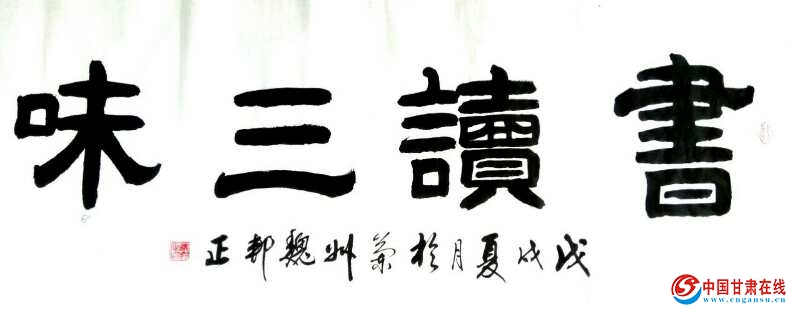 書讀三味
戊戌夏月於蘭州魏邦正
中国甘肃在线
www.cngansu.cn